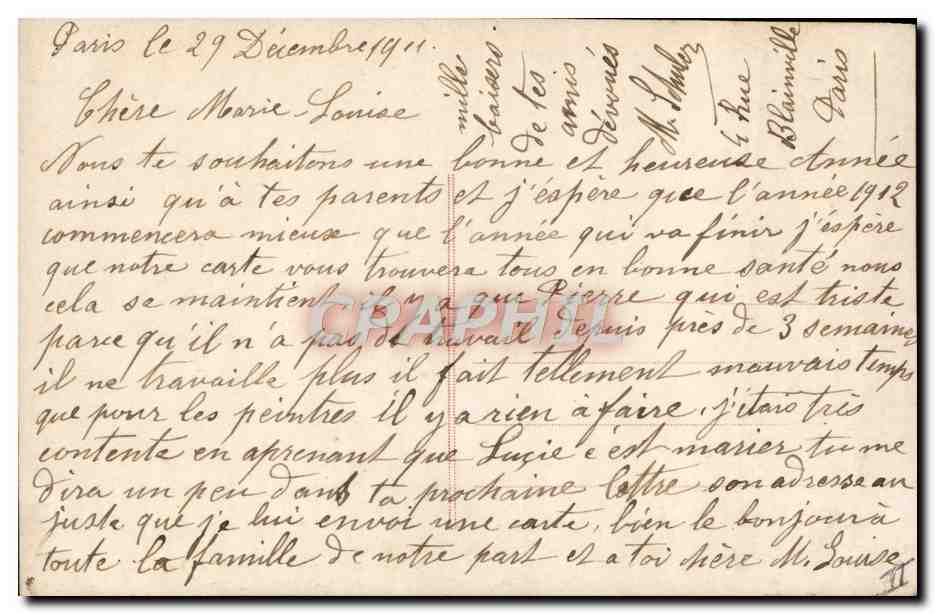 Paris le 29 Décembre 1911.
Chère Marie-Louise
Nous te souhaitons une bonne et heureuse Année
ainsi qu'à tes parents et j'éspère que l'année 1912
commencera mieux que l'année qui va finir j'éspère
que notre carte vous trouvera tous en bonne santé nous
cela se maintient il y a que Pierre qui est triste
parce qu'il n'á pas de travail depuis près de 3 semaines
il ne travaille plus il fait tellement mauvais temps
que pour les peintres il y a rien à faire, j'étais très
contente en aprenant que Luçie c'est marier tu me
dira un peu dans ta prochaine lettre son adresse au
juste que je lui envoi une carte, bien le bonjour à
toute la famille de notre part et a toi chère M. Louise
mille
baisers
de tes
amis
dévoués
4 Rue
Blainville
Paris
II
CPAPHIL